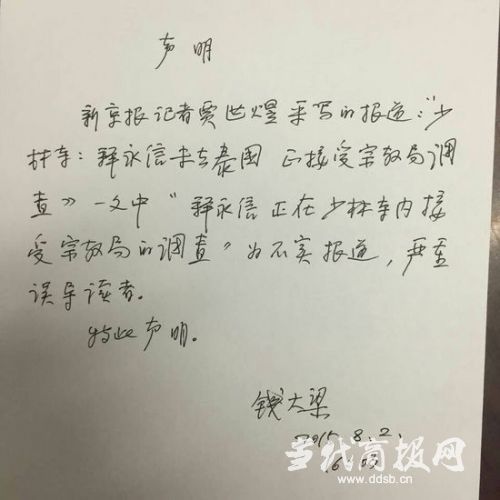 声明
新京报记者贾世煜采写的报道:《少
林寺:释永信未去泰国 正接受宗教局调
查》一文中“释永信正在少林寺内接
受宗教局的调查”为不实报道,严重
误导读者。
特此声明。
钱大梁
2015.8.2.
当代商报网
www.ddsb.cn